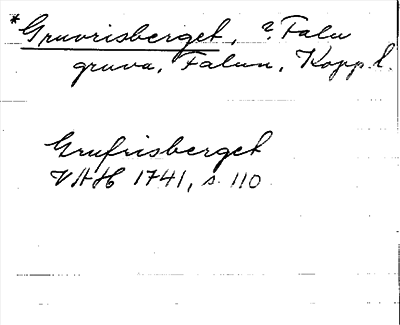 *Gruvrisberget, ? Falu
gruva, Falun, Kopp.l.
Grufrisberget
VAH 1741, s. 110